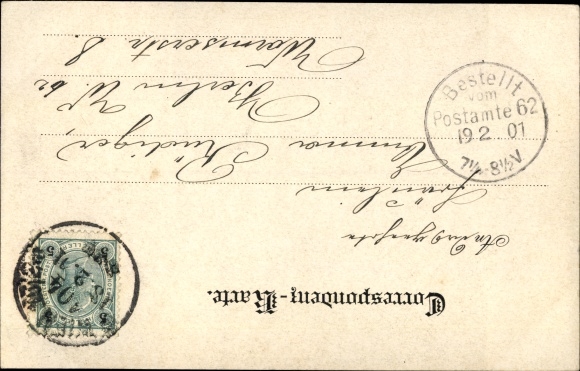 Correspondenz-Karte.
Fräulein
Emma Rüdiger,
Berlin W. 62
Wormserstr 8.
Bestellt
vom
Postamte 62
19 2 01
7¼-8½V